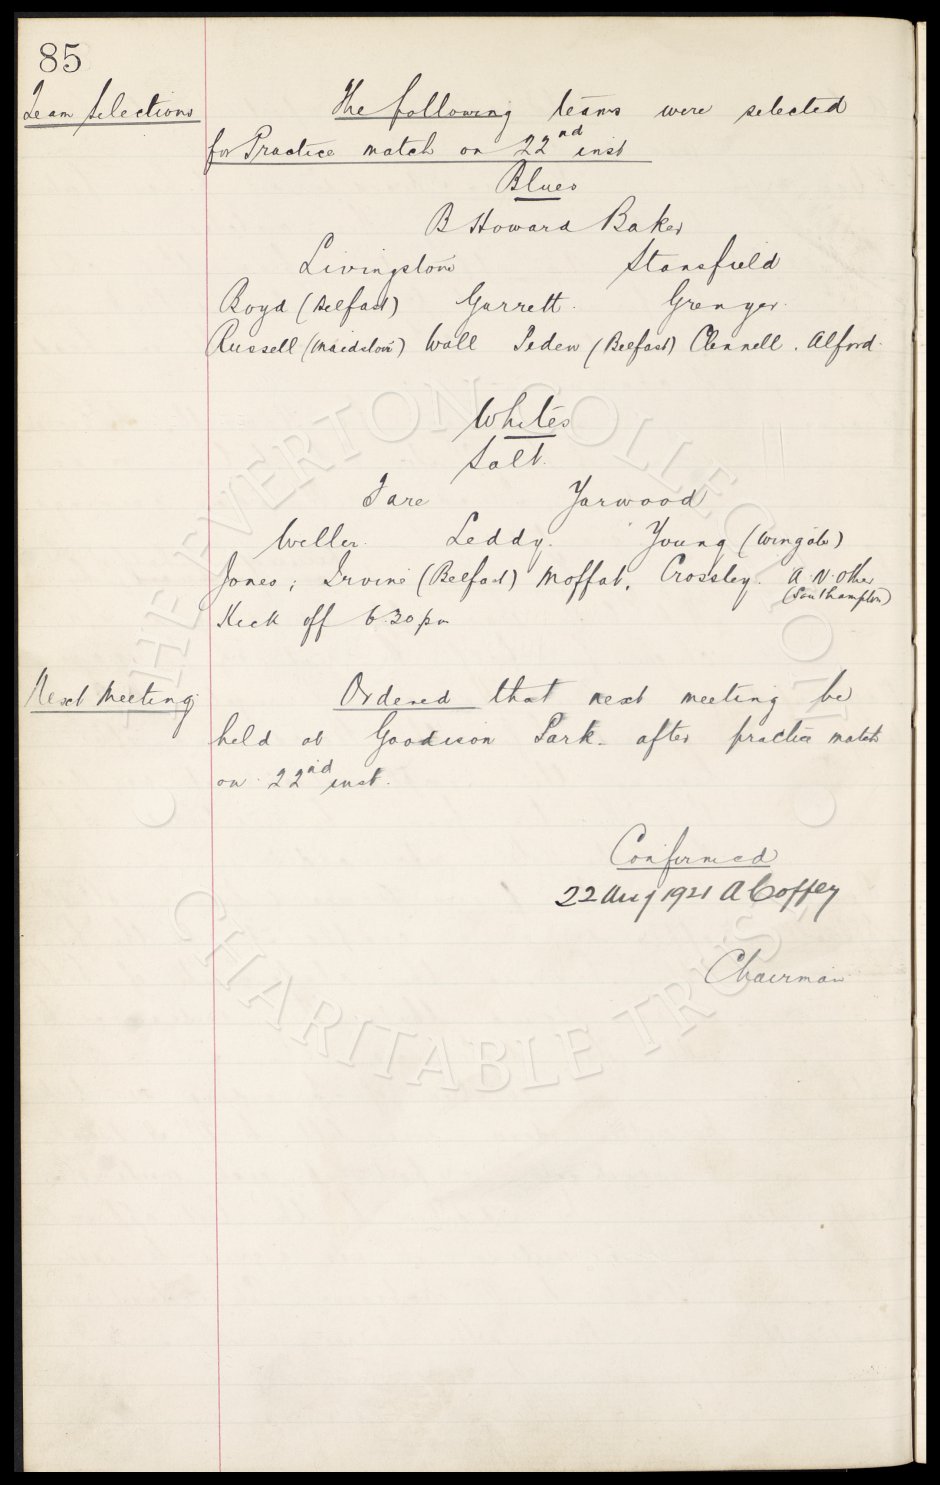 85
Team Selections
The following teams were selected
for Practice match on 22nd inst
Blues
B Howard Baker
Livingstone Stansfield
Boyd (Belfast) Garrett. Grenyer.
Russell (Maidstone) Wall Peden (Belfast) Clennell. Alford.
Whites
Salt.
Tare Yarwood
Weller. Leddy. Young (Wingate)
Jones, Irvine (Belfast) Moffat, Crossley. A. N. Other
(Southampton)
Kick off 6.30 pm
Next Meeting
Ordered that next meeting be
held at Goodison Park after practice match
on 22nd inst.
Confirmed
22 Aug 1921 A Coffey
Chairman
THE EVERTON COLLECTION
CHARITABLE TRUST